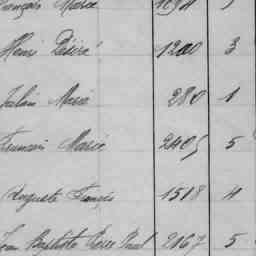 François Marie
Henri Désiré 1200 3
Julien Marie 280 1
Marie 2405 5
Auguste François 1518 4
Jean Baptiste Pierre Paul 2167 5